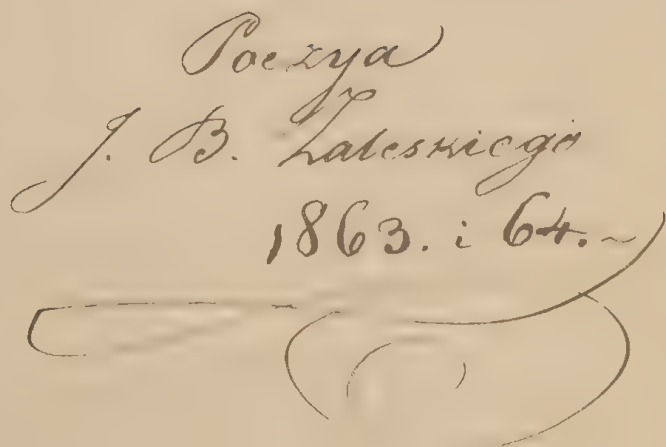 Poezya
J. B. Zaleskiego
1863. i 64. ~